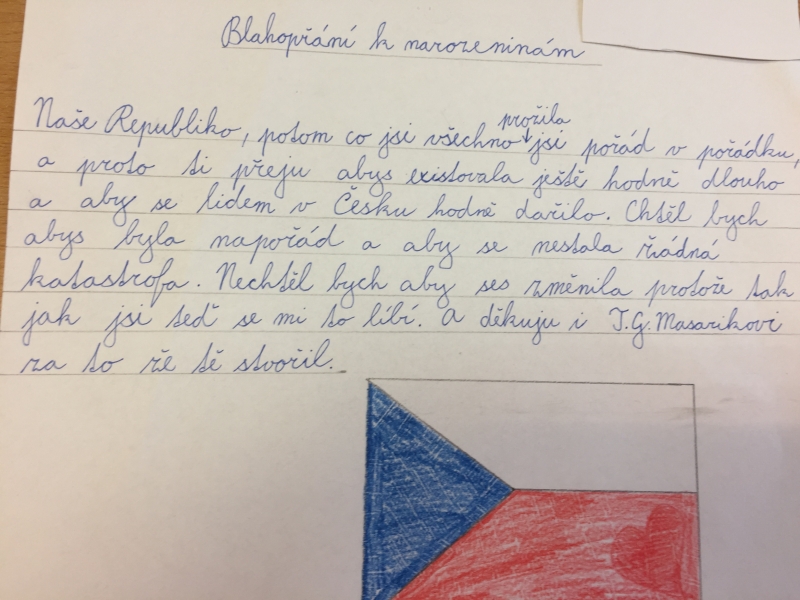 Blahopřání k narozeninám
Naše Republiko, potom co jsi všechno prožila jsi pořád v pořádku,
a proto ti přeju abys existovala ještě hodně dlouho
a aby se lidem v Česku hodně dařilo. Chtěl bych
abys byla napořád a aby se nestala žádná
katastrofa. Nechtěl bych aby ses změnila protože tak
jak jsi teď se mi to líbí. A děkuju i T.G.Masarikovi
za to že tě stvořil.